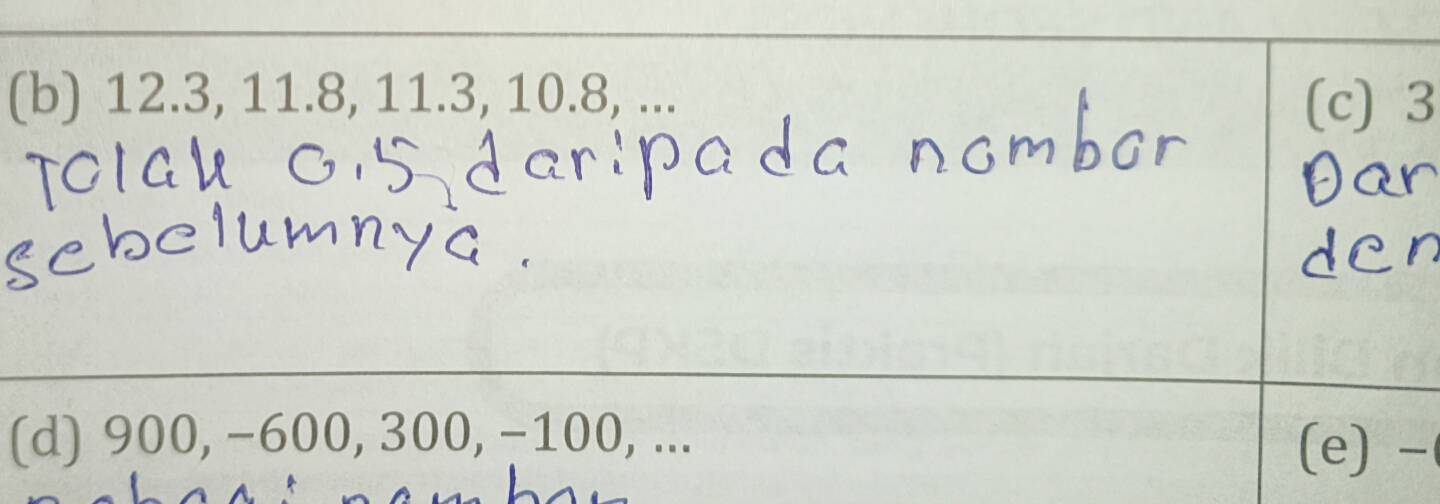 (b) 12.3, 11.8, 11.3, 10.8, ...
Tolak 0.5 daripada nombor
sebelumnya.
(c) 3
Dar
den
(d) 900, −600, 300, −100, ...
(e) −